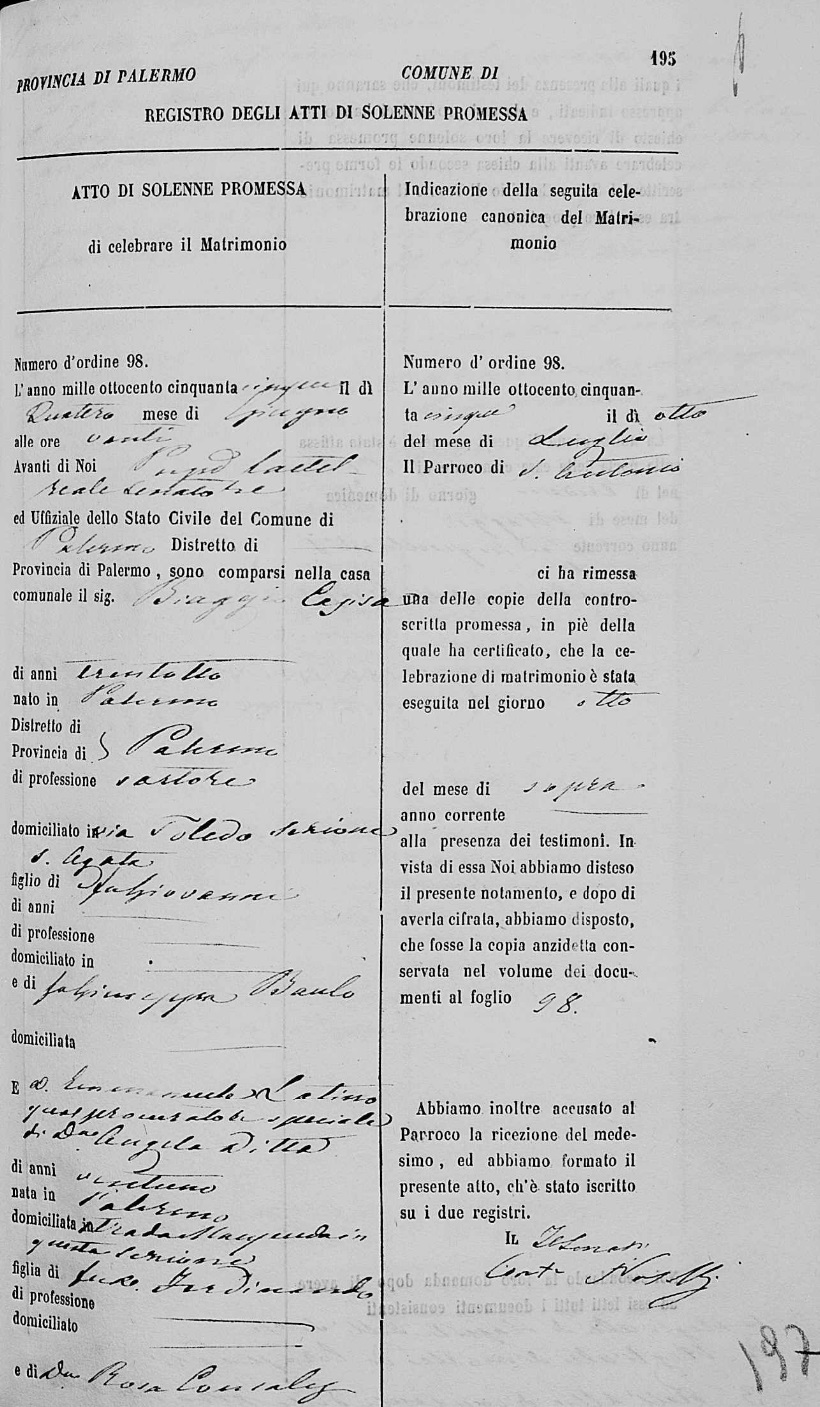 195
PROVINCIA DI PALERMO
COMUNE DI
REGISTRO DEGLI ATTI DI SOLENNE PROMESSA
ATTO DI SOLENNE PROMESSA
di celebrare il Matrimonio
Numero d'ordine 98.
L'anno mille ottocento cinquanta cinque Il dì
Quattro mese di Giugno
alle ore venti
Avanti di Noi
reale senatore
ed Uffiziale dello Stato Civile del Comune di
Palermo Distretto di
Provincia di Palermo, sono comparsi nella casa
comunale il sig. Biaggio
di anni trentotto
nato in Palermo
Distretto di
Provincia di Palermo
di professione sartore
domiciliato in via Toledo sezione
S. Agata
figlio di fu Giovanni
di anni
di professione
domiciliato in
e di fu Giuseppa Baulo
domiciliata
E D. Emmanuele Latino
qual procuratore speciale
di Dna Angela Ditta
di anni ventuno
nata in Palermo
domiciliata in Strada in
questa sezione
figlia di fu D. Ferdinando
di professione
domiciliato
e di Dna Rosa Consales
Indicazione della seguita cele-
brazione canonica del Matri-
monio
Numero d'ordine 98.
L'anno mille ottocento cinquan-
ta cinque il dì otto
del mese di Luglio
Il Parroco di S. Antonio
ci ha rimessa
una delle copie della contro-
scritta promessa, in piè della
quale ha certificato, che la ce-
lebrazione di matrimonio è stata
eseguita nel giorno otto
del mese di sopra
anno corrente
alla presenza dei testimoni. In
vista di essa Noi abbiamo disteso
il presente notamento, e dopo di
averla cifrata, abbiamo disposto,
che fosse la copia anzidetta con-
servata nel volume dei docu-
menti al foglio 98.
Abbiamo inoltre accusato al
Parroco la ricezione del mede-
simo, ed abbiamo formato il
presente atto, ch'è stato iscritto
su i due registri.
IL
197